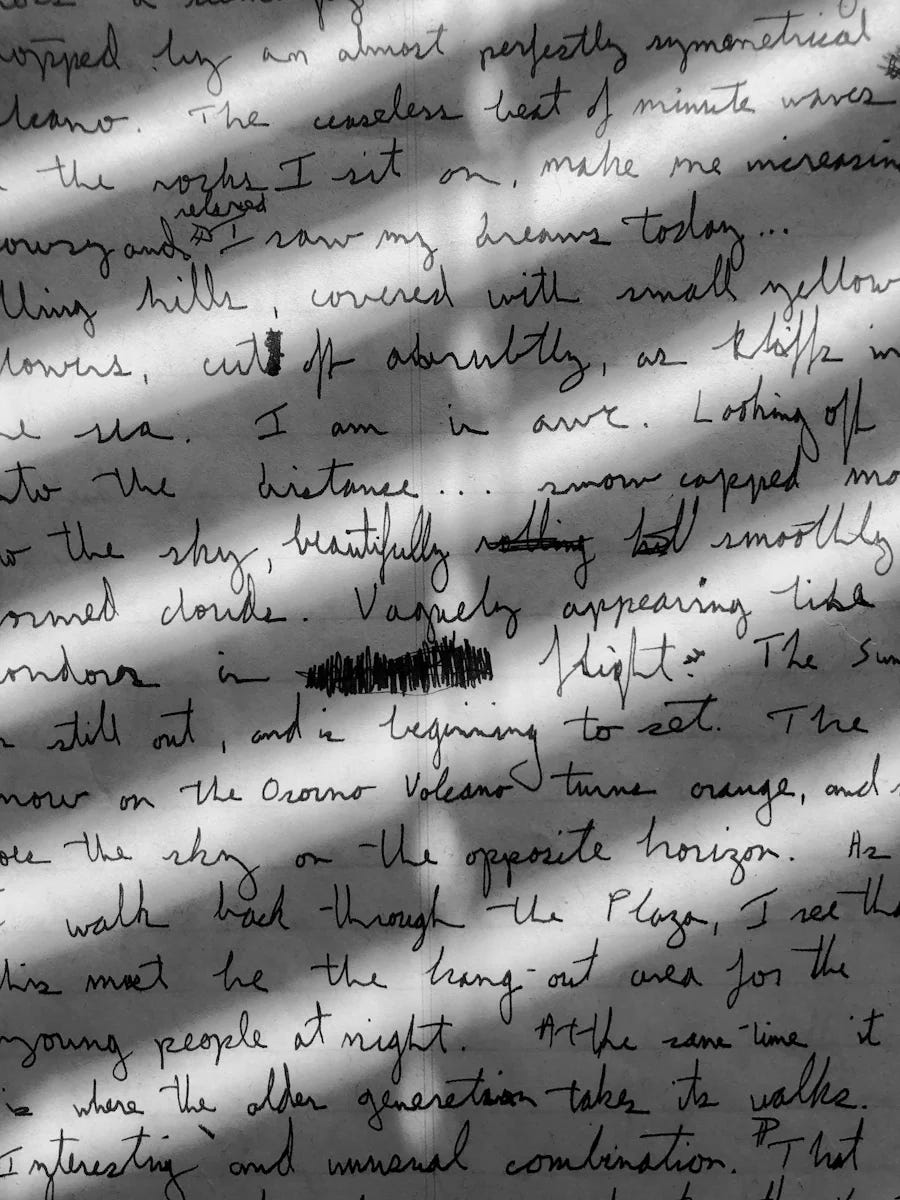 opped by an almost perfectly symmetrical
lcano. The ceaseless beat of minute waves
the rocks I sit on, make me increasin
relaxed
owsy and I saw my dreams today...
lling hills, covered with small yellow
lowers, cut off abrubtly, as kliffs in
e sea. I am in awe. Looking off
nto the distance... snow capped mo
o the sky, beautifully rolling smoothly
ormed clouds. Vaguely appearing like
ondors in flight. The Sun
s still out, and is beginning to set. The
now on the Osorno Volcano turns orange, and s
oes the sky on the opposite horizon. As
I walk back through the Plaza, I see tha
his must be the hang-out area for the
young people at night. At the same time it
is where the older generation takes its walks.
Interesting and unusual combination. That